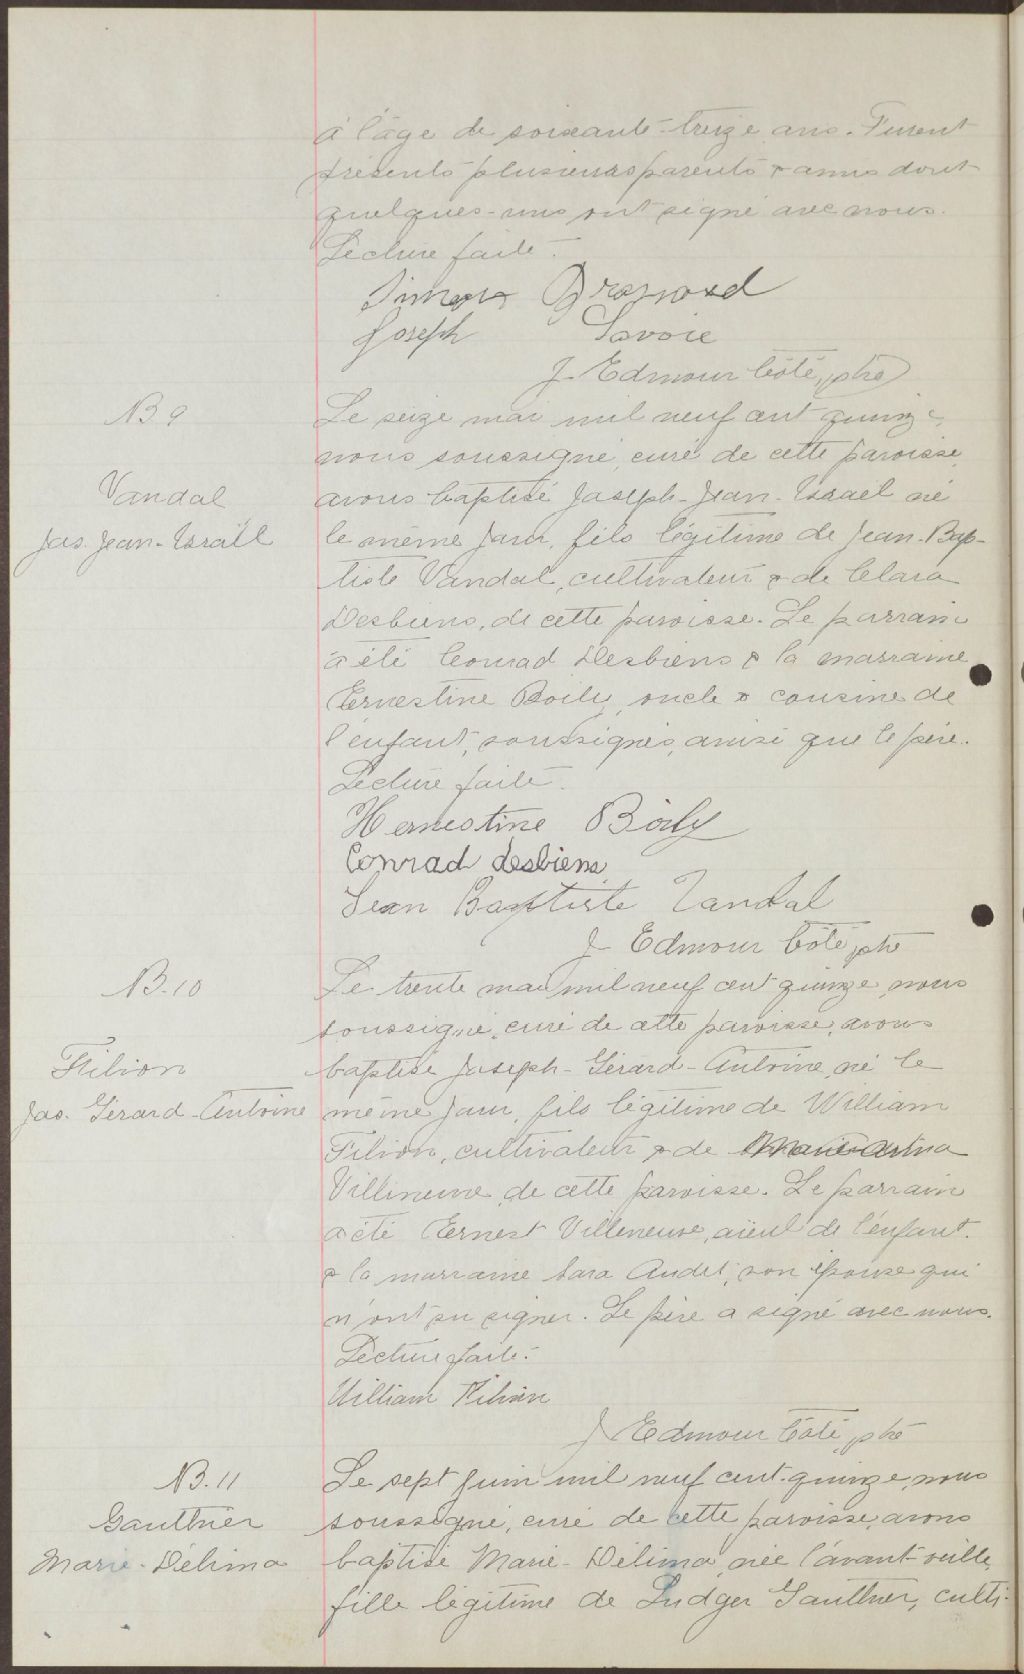 à l'âge de soixante-treize ans. Furent
présents plusieurs parents & amis dont
quelques-uns ont signé avec nous.
Lecture faite.
Simeon Brassard
Joseph Savoie
J. Edmour Côté, ptre
B 9
Vandal
Jos. Jean-Israël
Le seize mai mil neuf cent quinze,
nous soussigné, curé de cette paroisse,
avons baptisé Joseph-Jean-Israël né
le même jour, fils légitime de Jean-Bap-
tiste Vandal, cultivateur & de Clara
Desbiens, de cette paroisse. Le parrain
a été Conrad Desbiens & la marraine
Ernestine Boily, oncle & cousine de
l'enfant, soussignés, ainsi que le père.
Lecture faite.
Hernestine Boily
Conrad desbiens
Jean Baptiste Vandal
J Edmour Côté, ptre
B.10
Filion
Jos. Gérard-Antoine
Le trente mai mil neuf cent quinze, nous
soussigné, curé de cette paroisse, avons
baptisé Joseph-Gérard-Antoine, né le
même jour, fils légitime de William
Filion, cultivateur & de
Villeneuve, de cette paroisse. Le parrain
a été Ernest Villeneuve, aïeul de l'enfant.
& la marraine Sara Audet, son épouse qui
n'ont su signer. Le père a signé avec nous.
Lecture faite.
William Filion
J Edmour Côté, ptre
B.11
Gauthier
Marie-Délima
Le sept juin mil neuf cent quinze, nous
soussigné, curé de cette paroisse, avons
baptisé Marie-Délima, née l'avant-veille,
fille légitime de Ludger Gauthier, culti-